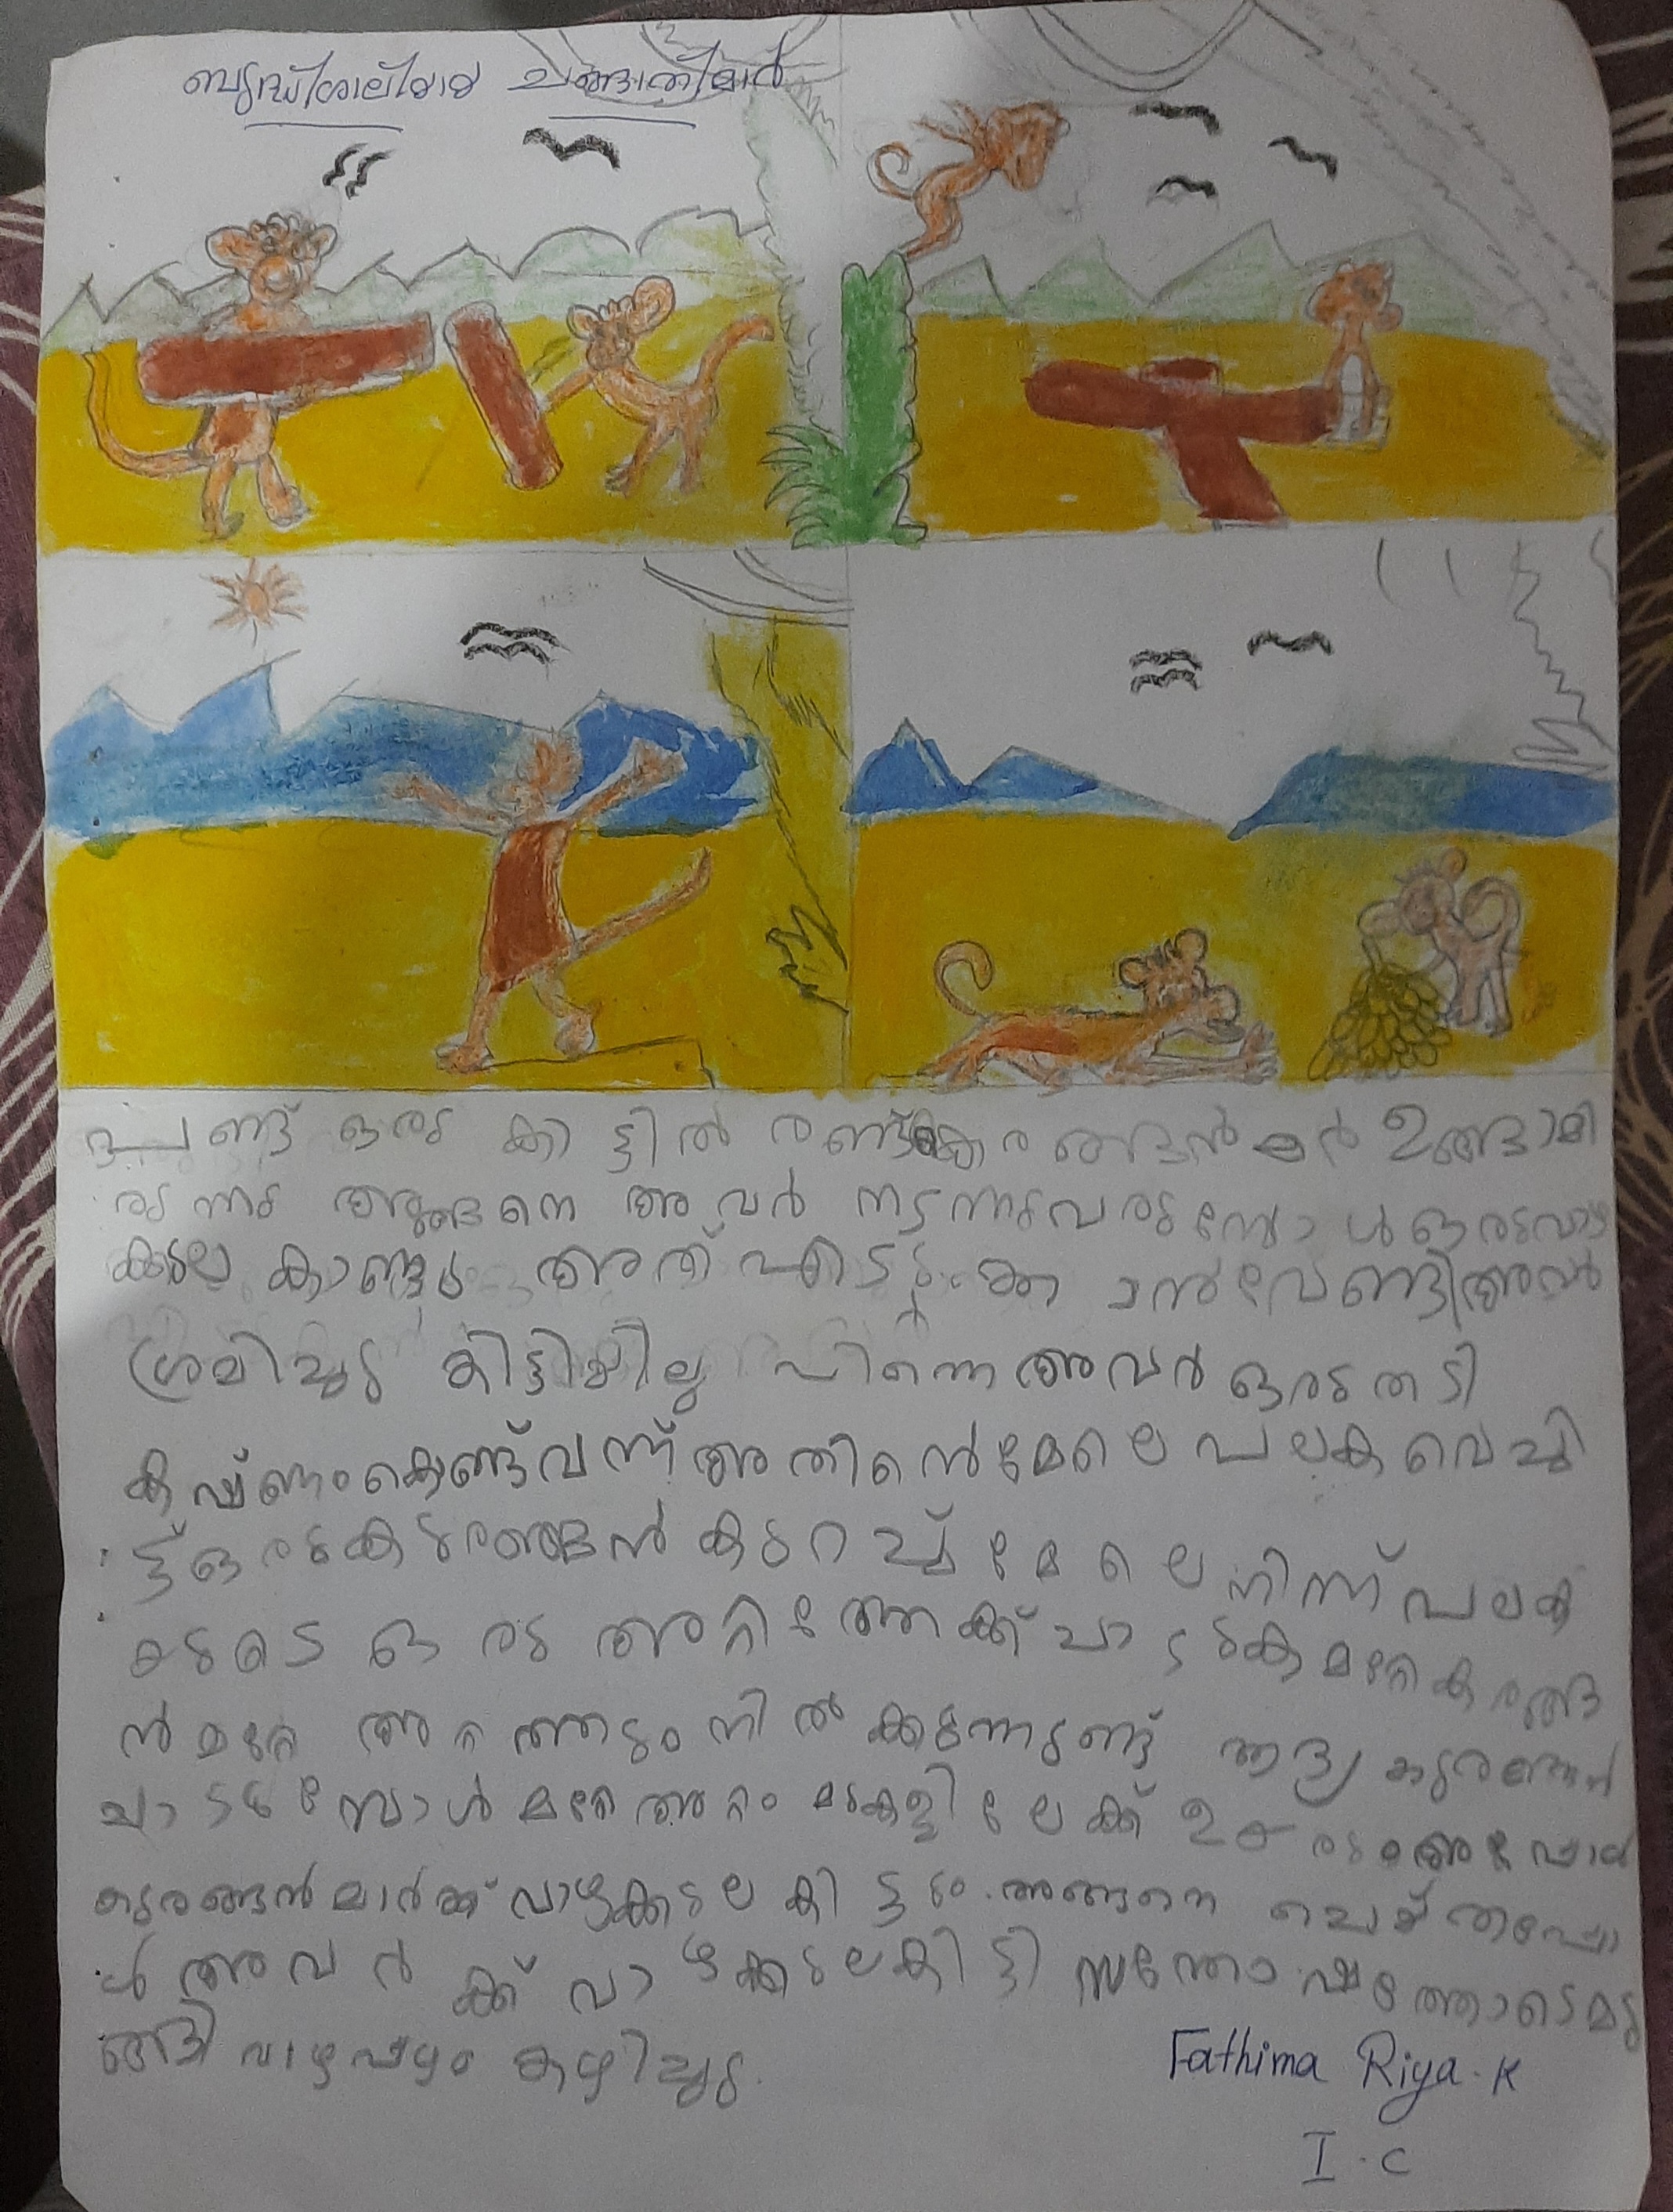 ബുദ്ധിശാലിയായ ചങ്ങാതിമാർ
പണ്ട് ഒരു കാട്ടിൽ രണ്ട് ഉണ്ടായി
രുന്നു അങ്ങനെ അവർ നടന്നുവരുമ്പോൾ ഒരുവാഴ
ക്കുല കാണ്ടു അത് എടുക്കാൻവേണ്ടിഅവർ
ശ്രമിച്ചു കിട്ടിയില്ല പിന്നെ അവർ ഒരു തടി
കഷ്ണംകൊണ്ട്വന്ന് അതിനെൻമേലെ പലക വെച്ചി
ട്ട് ഒരുകുരങ്ങൻ കുറച്ച് മേലെ നിന്ന് പലക
യുടെ ഒരു അറ്റത്തേക്ക് ചാടുക മറ്റേകുരങ്ങ
ൻ മറ്റേ അറ്റത്തും നിൽക്കുന്നുണ്ട് ആദ്യ കുരങ്ങൻ
ചാടുമ്പോൾ മറ്റേഅറ്റം മുകളിലേക്ക് ഉയരും
കുരങ്ങൻമാർക്ക് വാഴക്കുല കിട്ടും. അങ്ങനെ ചെയ്തപ്പോ
ൾ അവർക്ക് വാഴക്കുലകിട്ടി സന്തോഷത്തോടെ
വാഴപ്പഴം കഴിച്ചു.
Fathima Riya. K
I. C